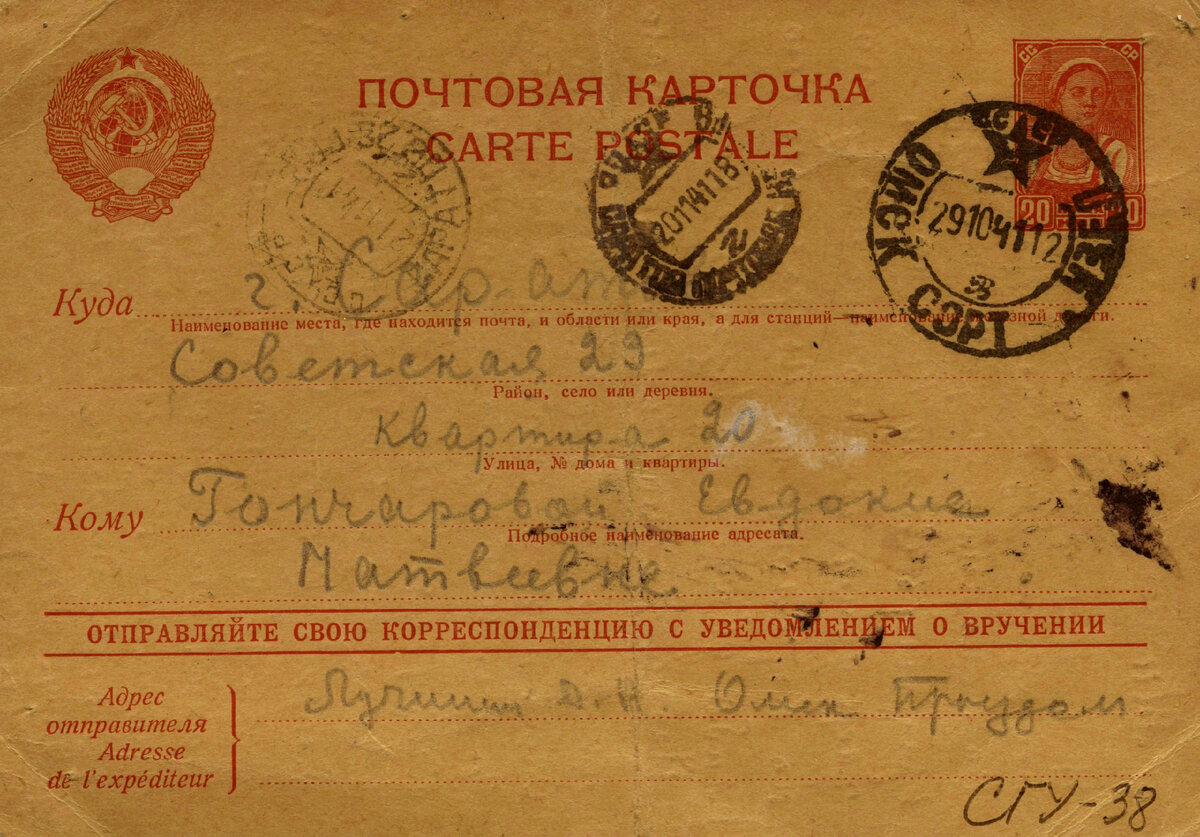 ПОЧТОВАЯ КАРТОЧКА
CARTE POSTALE
СС СР
20
ОМСК СОРТ
29104112
20114118
Куда г. Сарат
Наименование места, где находится почта, и области или края, а для станций—наименование железной дороги.
Советская 29
Район, село или деревня.
квартира 20
Улица, № дома и квартиры.
Кому Гончаровой Евдокиа
Подробное наименование адресата.
Матвеевне
ОТПРАВЛЯЙТЕ СВОЮ КОРРЕСПОНДЕНЦИЮ С УВЕДОМЛЕНИЕМ О ВРУЧЕНИИ
Адрес
отправителя
Adresse
de l'expéditeur
Д. Н. Омск
СГУ-38